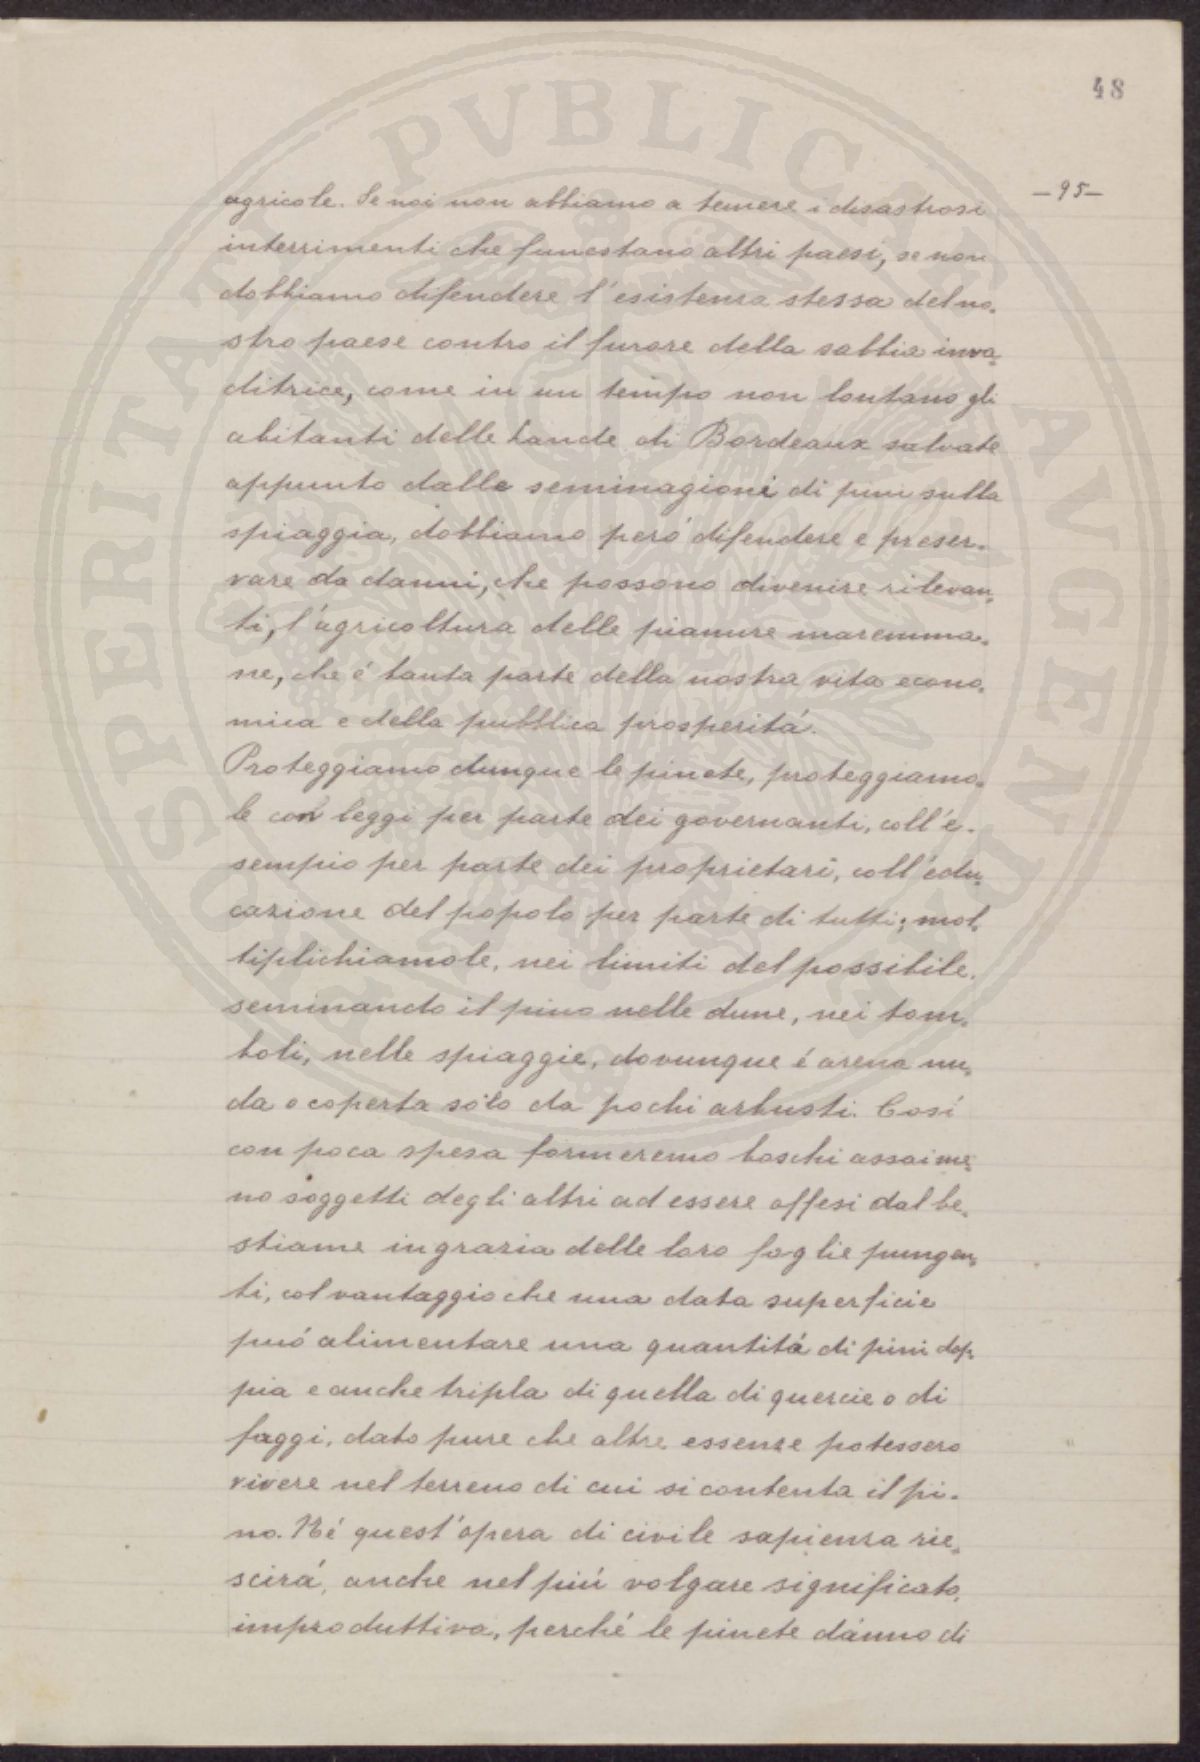 48
—95—
agricole. Se noi non abbiamo a temere i disastrosi
interrimenti che funestano altri paesi, se non
dobbiamo difendere l'esistenza stessa del no-
stro paese contro il furore della sabbia inva-
ditrice, come in un tempo non lontano gli
abitanti delle Lande di Bordeaux salvate
appunto dalle seminagioni di pini sulla
spiaggia, dobbiamo peró difendere e preser-
vare da danni, che possono divenire rilevan-
ti, l'agricoltura delle pianure maremma-
ne, che é tanta parte della nostra vita econo-
mica e della pubblica prosperitá.
Proteggiamo dunque le pinete, proteggiamo-
le con leggi per parte dei governanti, coll'e-
sempio per parte dei proprietari, coll'edu-
cazione del popolo per parte di tutti; mol-
tiplichiamole, nei limiti del possibile,
seminando il pino nelle dune, nei tom-
boli, nelle spiaggie, dovunque é arena nu-
da o coperta solo da pochi arbusti. Cosí
con poca spesa formeremo boschi assai me-
no soggetti degli altri ad essere offesi dal be-
stiame in grazia delle loro foglie pungen-
ti, col vantaggio che una data superficie
puó alimentare una quantitá di pini dop-
pia e anche tripla di quella di quercie o di
faggi, dato pure che altre essenze potessero
vivere nel terreno di cui si contenta il pi-
no. Né quest'opera di civile sapienza rie-
scirá, anche nel piú volgare significato,
improduttiva, perché le pinete dánno di
PROSPERITATI PVBLICAE AVGENDAE